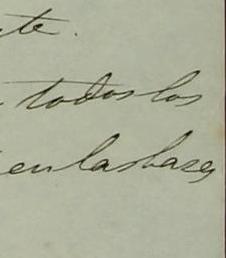 te.
todos los
en las bases